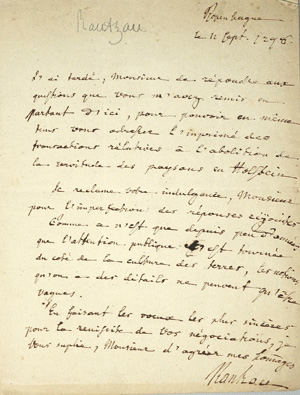 Rantzau
Kopenhague
ce 11 Sept. 1798.
J'ai tardé, Monsieur de répondre aux
questions que vous m'avez remis en
partant d'ici, pour pouvoir en même
tems vous adresser l'imprimé des
transactions relatives à l'abolition de
la servitude des paysans en Holstein
Je reclame votre indulgence, Monsieur
pour l'imperfection des réponses cijointes
Comme ce n'est que depuis peu d'années
que l'attention publique s'est tournée
du coté de la culture des terres, les notions
qu'on a des détails ne peuvent qu'être
vagues.
En faisant les voeux les plus sincères
pour la reussite de vos négociations, je
vous suplie, Monsieur d'agréer mes homages
Rantzau